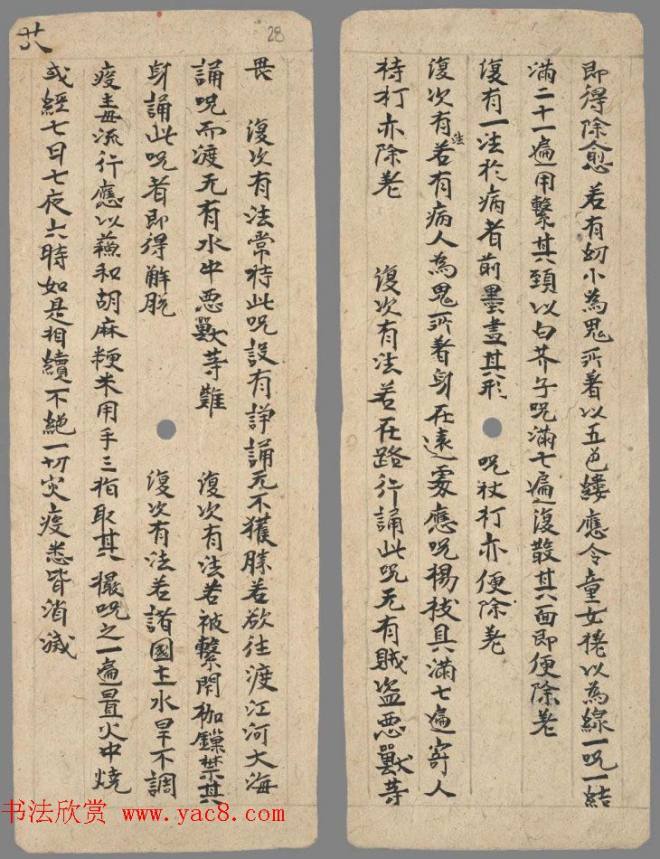 即得除愈 若有幼小為鬼所著以五色縷應令童女撚以為線一呪一結
滿二十一遍用繫其頸以白芥子呪滿七遍復散其面即便除差
復有一法於病者前墨畫其形 呪杖打亦便除差
復次有法若有病人為鬼所著身在遠處應呪楊枝具滿七遍寄人
持打亦除差 復次有法若在路行誦此呪无有賊盜惡獸等
畏 復次有法常持此呪設有諍訟无不獲勝若欲往渡江河大海
誦呪而渡无有水中惡獸等難 復次有法若被繫閇枷鏁禁其
身誦此呪者即得解脫 復次有法若諸國土水旱不調
疫毒流行應以蘇和胡麻粳米用手三指取其一撮呪之一遍置火中燒
或經七日七夜六時如是相續不絕一切灾疫悉皆消滅
28
书法欣赏 www.yac8.com